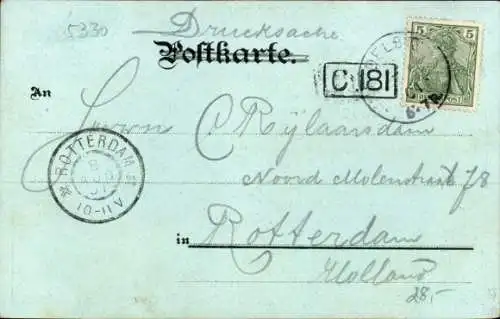 5330
Drucksache
Postkarte.
5 5
C. 181
An
Herrn C Rijlaarsdam
ROTTERDAM
10-11V
Noord Molenstraat 78
in Rotterdam
Holland
28,-